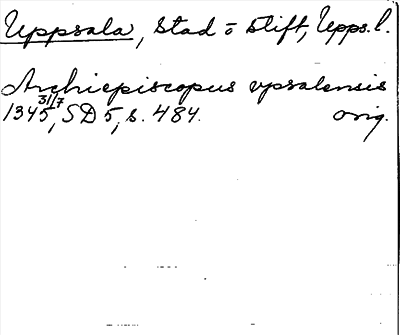 Uppsala, Stad o Stift, Upps. l.
Archiepiscopus upsalensis
1345 31/7, SD 5, s. 484. orig.